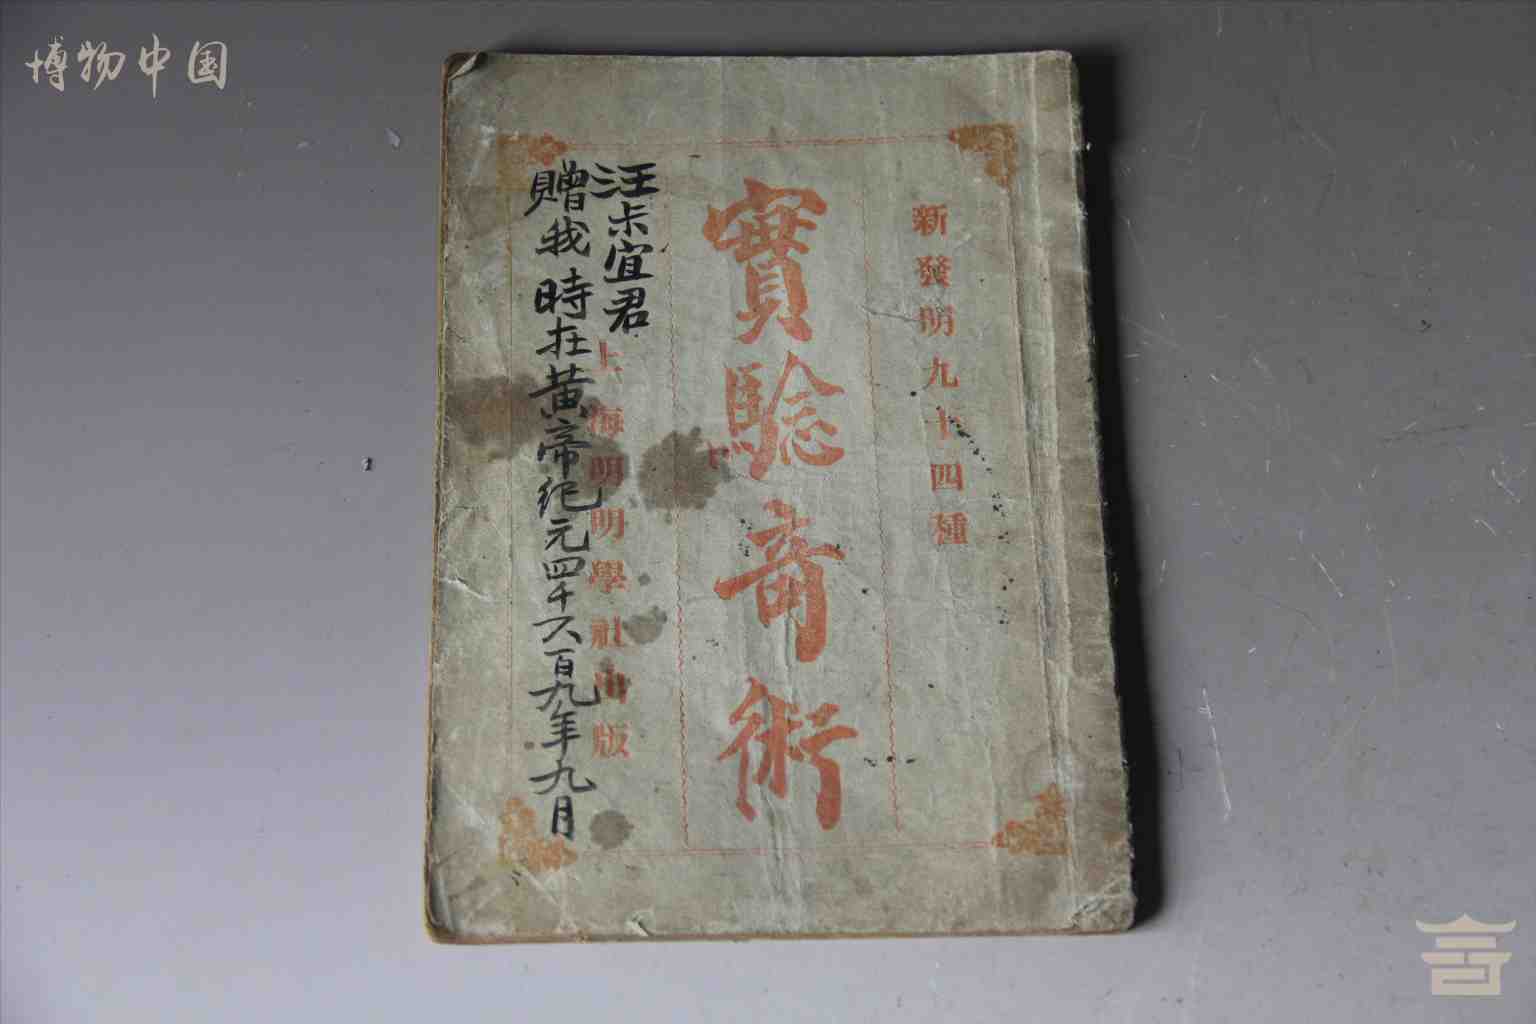 博物中国
新發明九十四種
實驗奇術
上海明明學社出版
汪尗宜君
贈我時在黃帝纪元四千六百九年九月